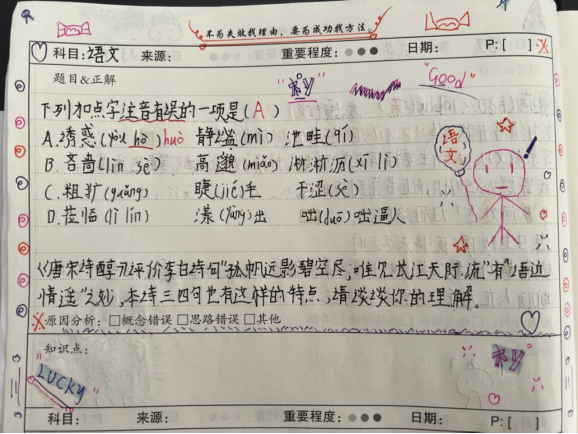 不为失败找理由，要为成功找方法。
科目：语文 来源： 重要程度： 日期： P:[ ]
题目&正解
"Good"
下列加点字注音有误的一项是(A)
A.诱惑(yòu hò)huò 静谧(mì) 池畦(qí)
语文
B.吝啬(lìn sè) 高邈(miǎo) 淅淅沥(xī lì)
C.粗犷(guǎng) 睫(jié)毛 干涩(sè)
D.莅临(lì lín) 漾(yàng)出 咄(duō)咄逼人
《唐宋诗醇》评价李白诗句"孤帆远影碧空尽，唯见长江天际流"有"语近
情遥"之妙，本诗三四句也有这样的特点，请谈谈你的理解。
原因分析：□概念错误 □思路错误 □其他
知识点：
LUCKY
科目： 来源： 重要程度： 日期： P:[ ]